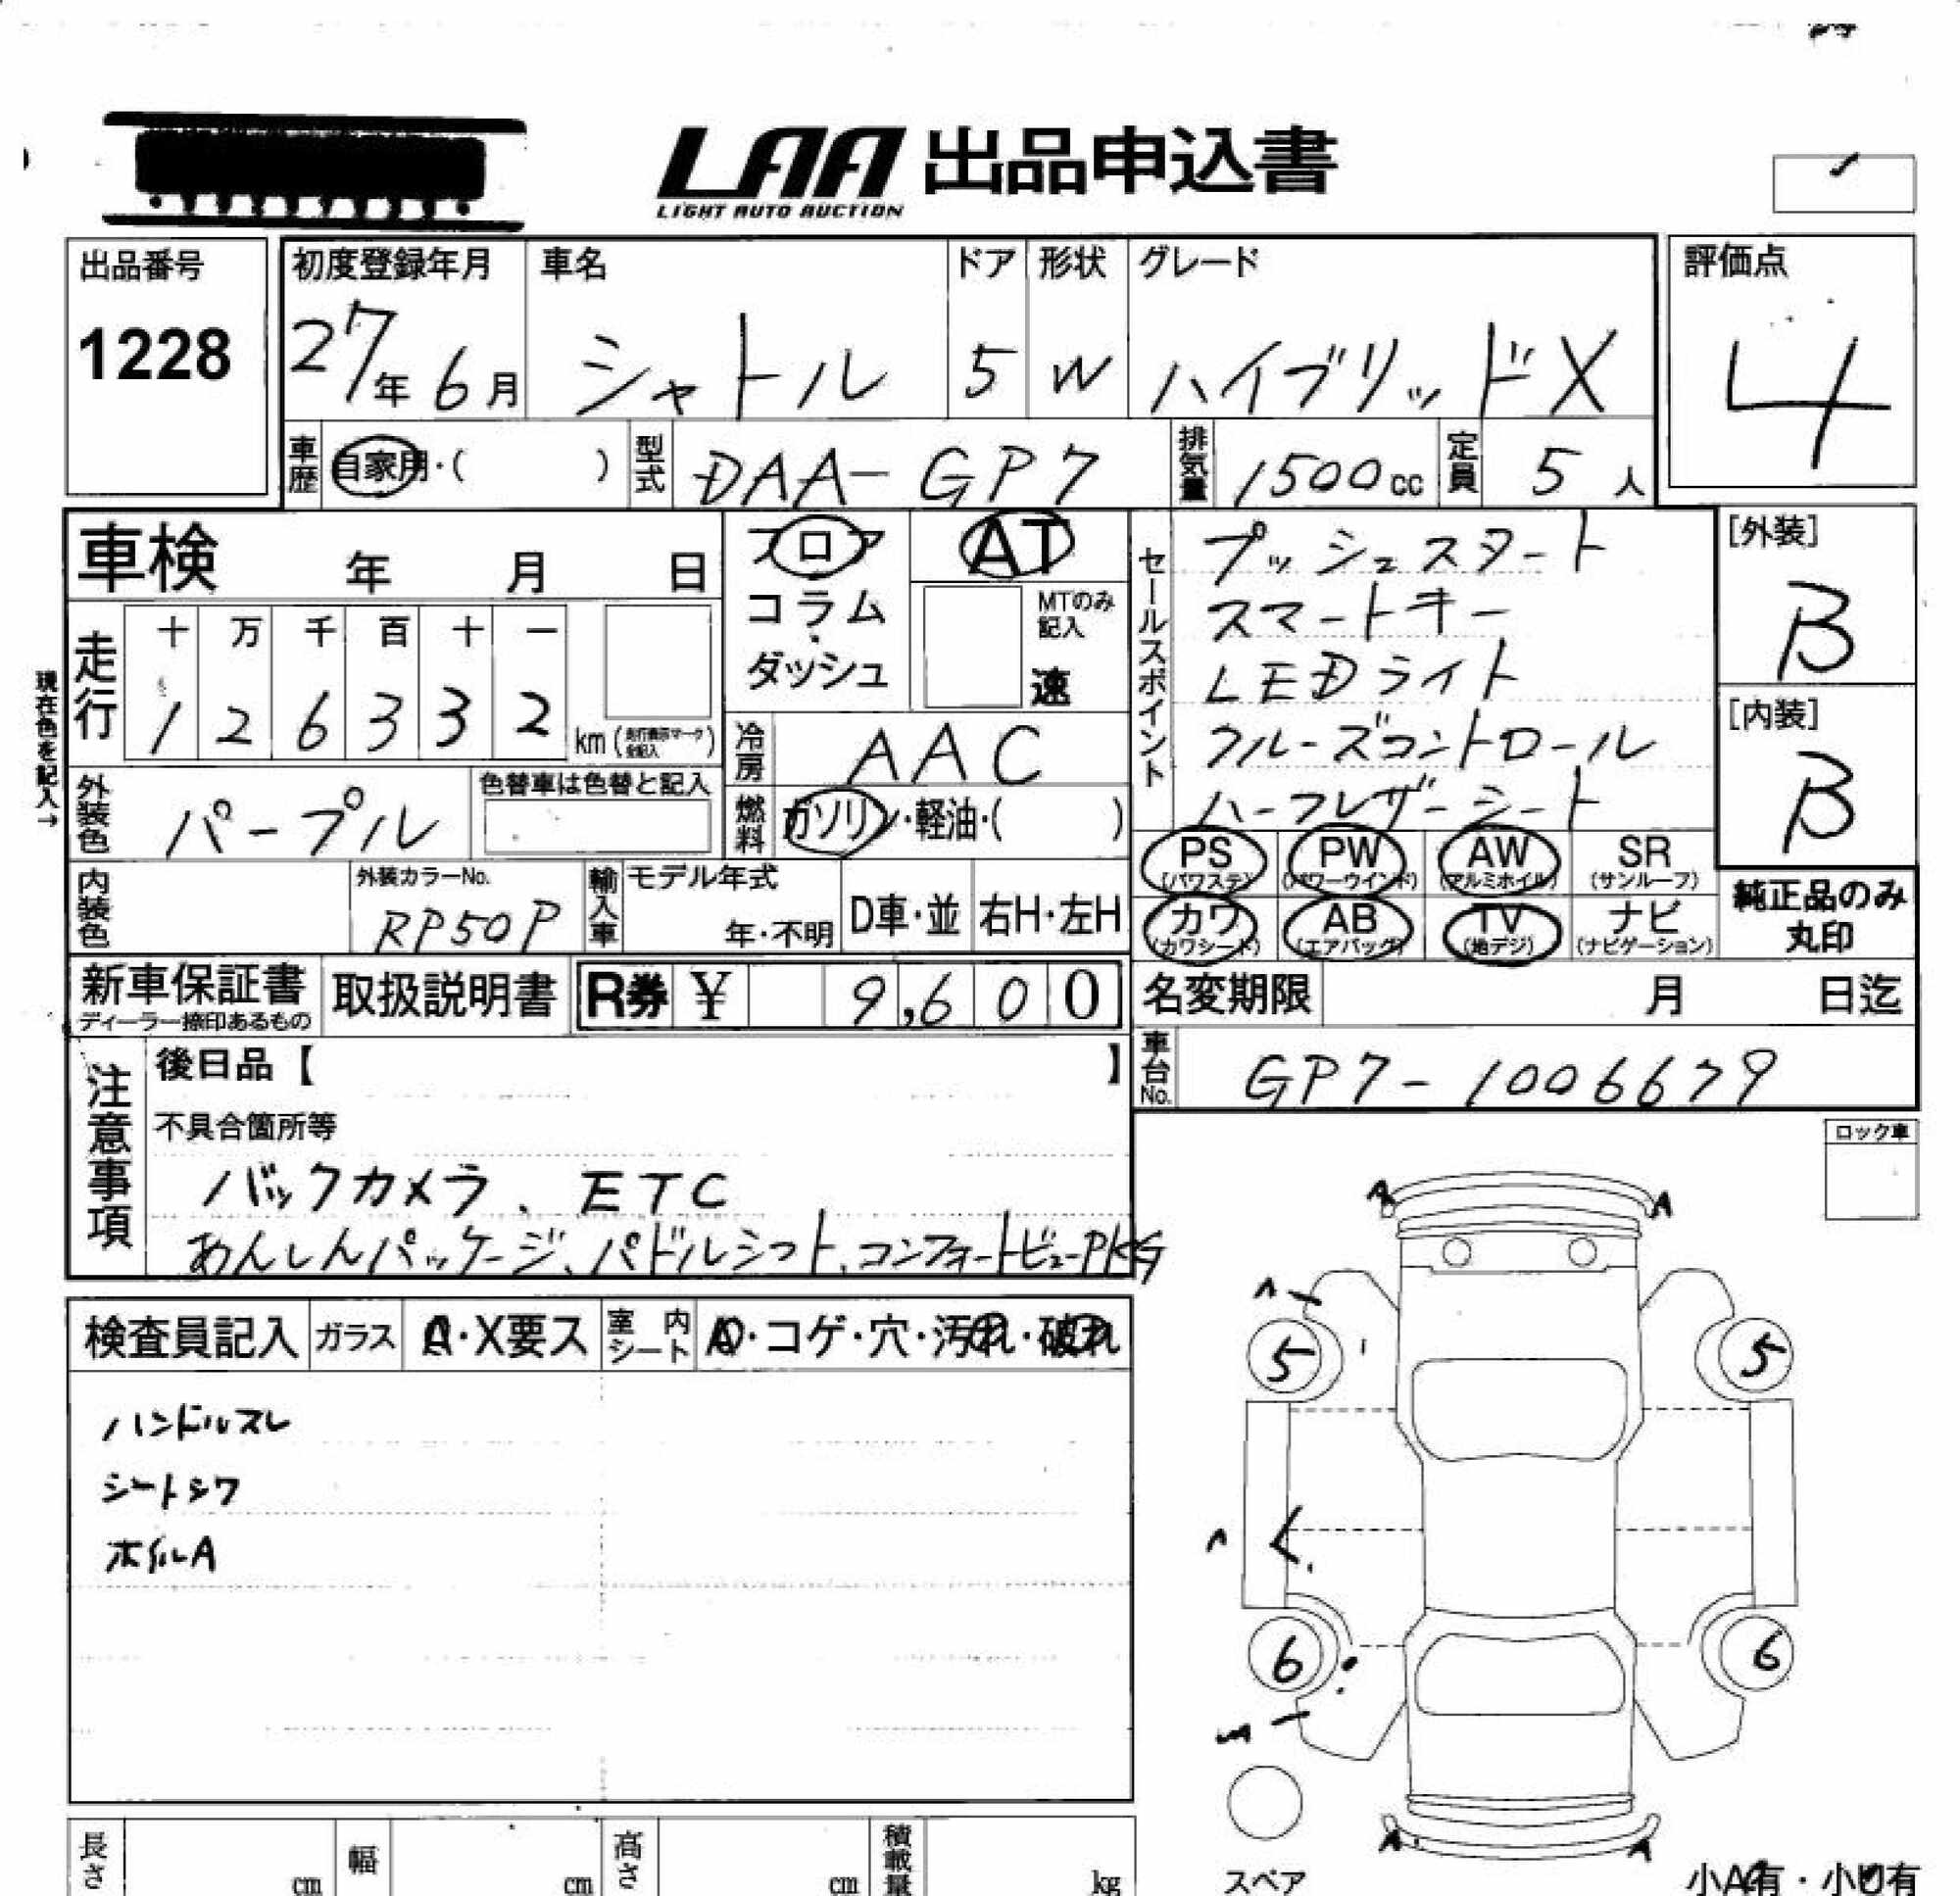 LAA 出品申込書
LIGHT AUTO AUCTION
出品番号
1228
初度登録年月
27年 6月
車名
シャトル
ドア
5
形状
W
グレード
ハイブリッドX
評価点
4
車歴 自家用・( )
型式 DAA-GP7
排気量 1500cc
定員 5人
車検 年 月 日
フロア
コラム
ダッシュ
AT
MTのみ記入
速
走行
十 万 千 百 十 一
1 2 6 3 3 2 km (走行表示マーク全記入)
現在色を記入→
外装色 パープル
色替車は色替と記入
冷房 AAC
燃料 ガソリン・軽油・( )
内装色
外装カラーNo.
RP50P
輸入車 モデル年式
年・不明
D車・並
右H・左H
セールスポイント
プッシュスタート
スマートキー
LEDライト
クルーズコントロール
ハーフレザーシート
[外装]
B
[内装]
B
PS (パワステ) PW (パワーウインド) AW (アルミホイル) SR (サンルーフ)
カワ (カワシート) AB (エアバッグ) TV (地デジ) ナビ (ナビゲーション)
純正品のみ丸印
新車保証書
ディーラー捺印あるもの
取扱説明書
R券 ¥ 9,600
名変期限 月 日迄
車台No. GP7-1006679
注意事項
後日品【 】
不具合箇所等
バックカメラ、ETC
あんしんパッケージ、パドルシフト、コンフォートビューPKG
ロック車
検査員記入 ガラス A・X要ス 室内シート A・コゲ・穴・汚れ・破れ
ハンドルスレ
シートシワ
ホイルA
A A
A
5 5
A
6 6
A
A A
スペア
小A有・小U有
長さ cm 幅 cm 高さ cm 積載量 kg